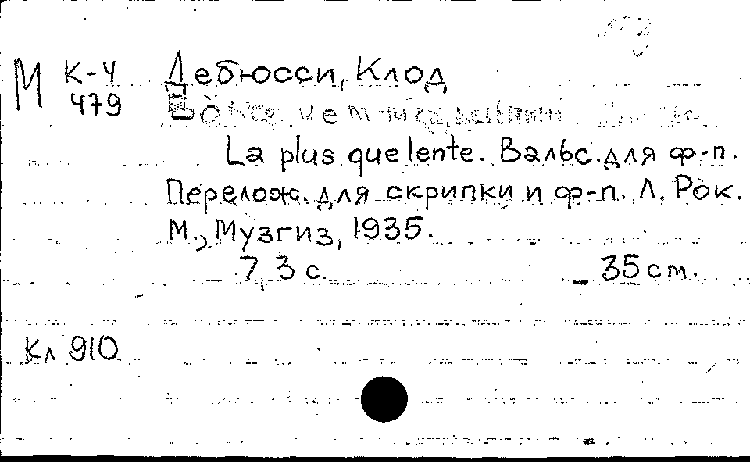 М К-4 Дебюсси, Клод
479
La plus que lente. Вальс для ф-п.
Перелож. для скрипки и ф-п. Л. Рок.
М., Музгиз, 1935.
7, 3 с. 35 см.
Кл 910